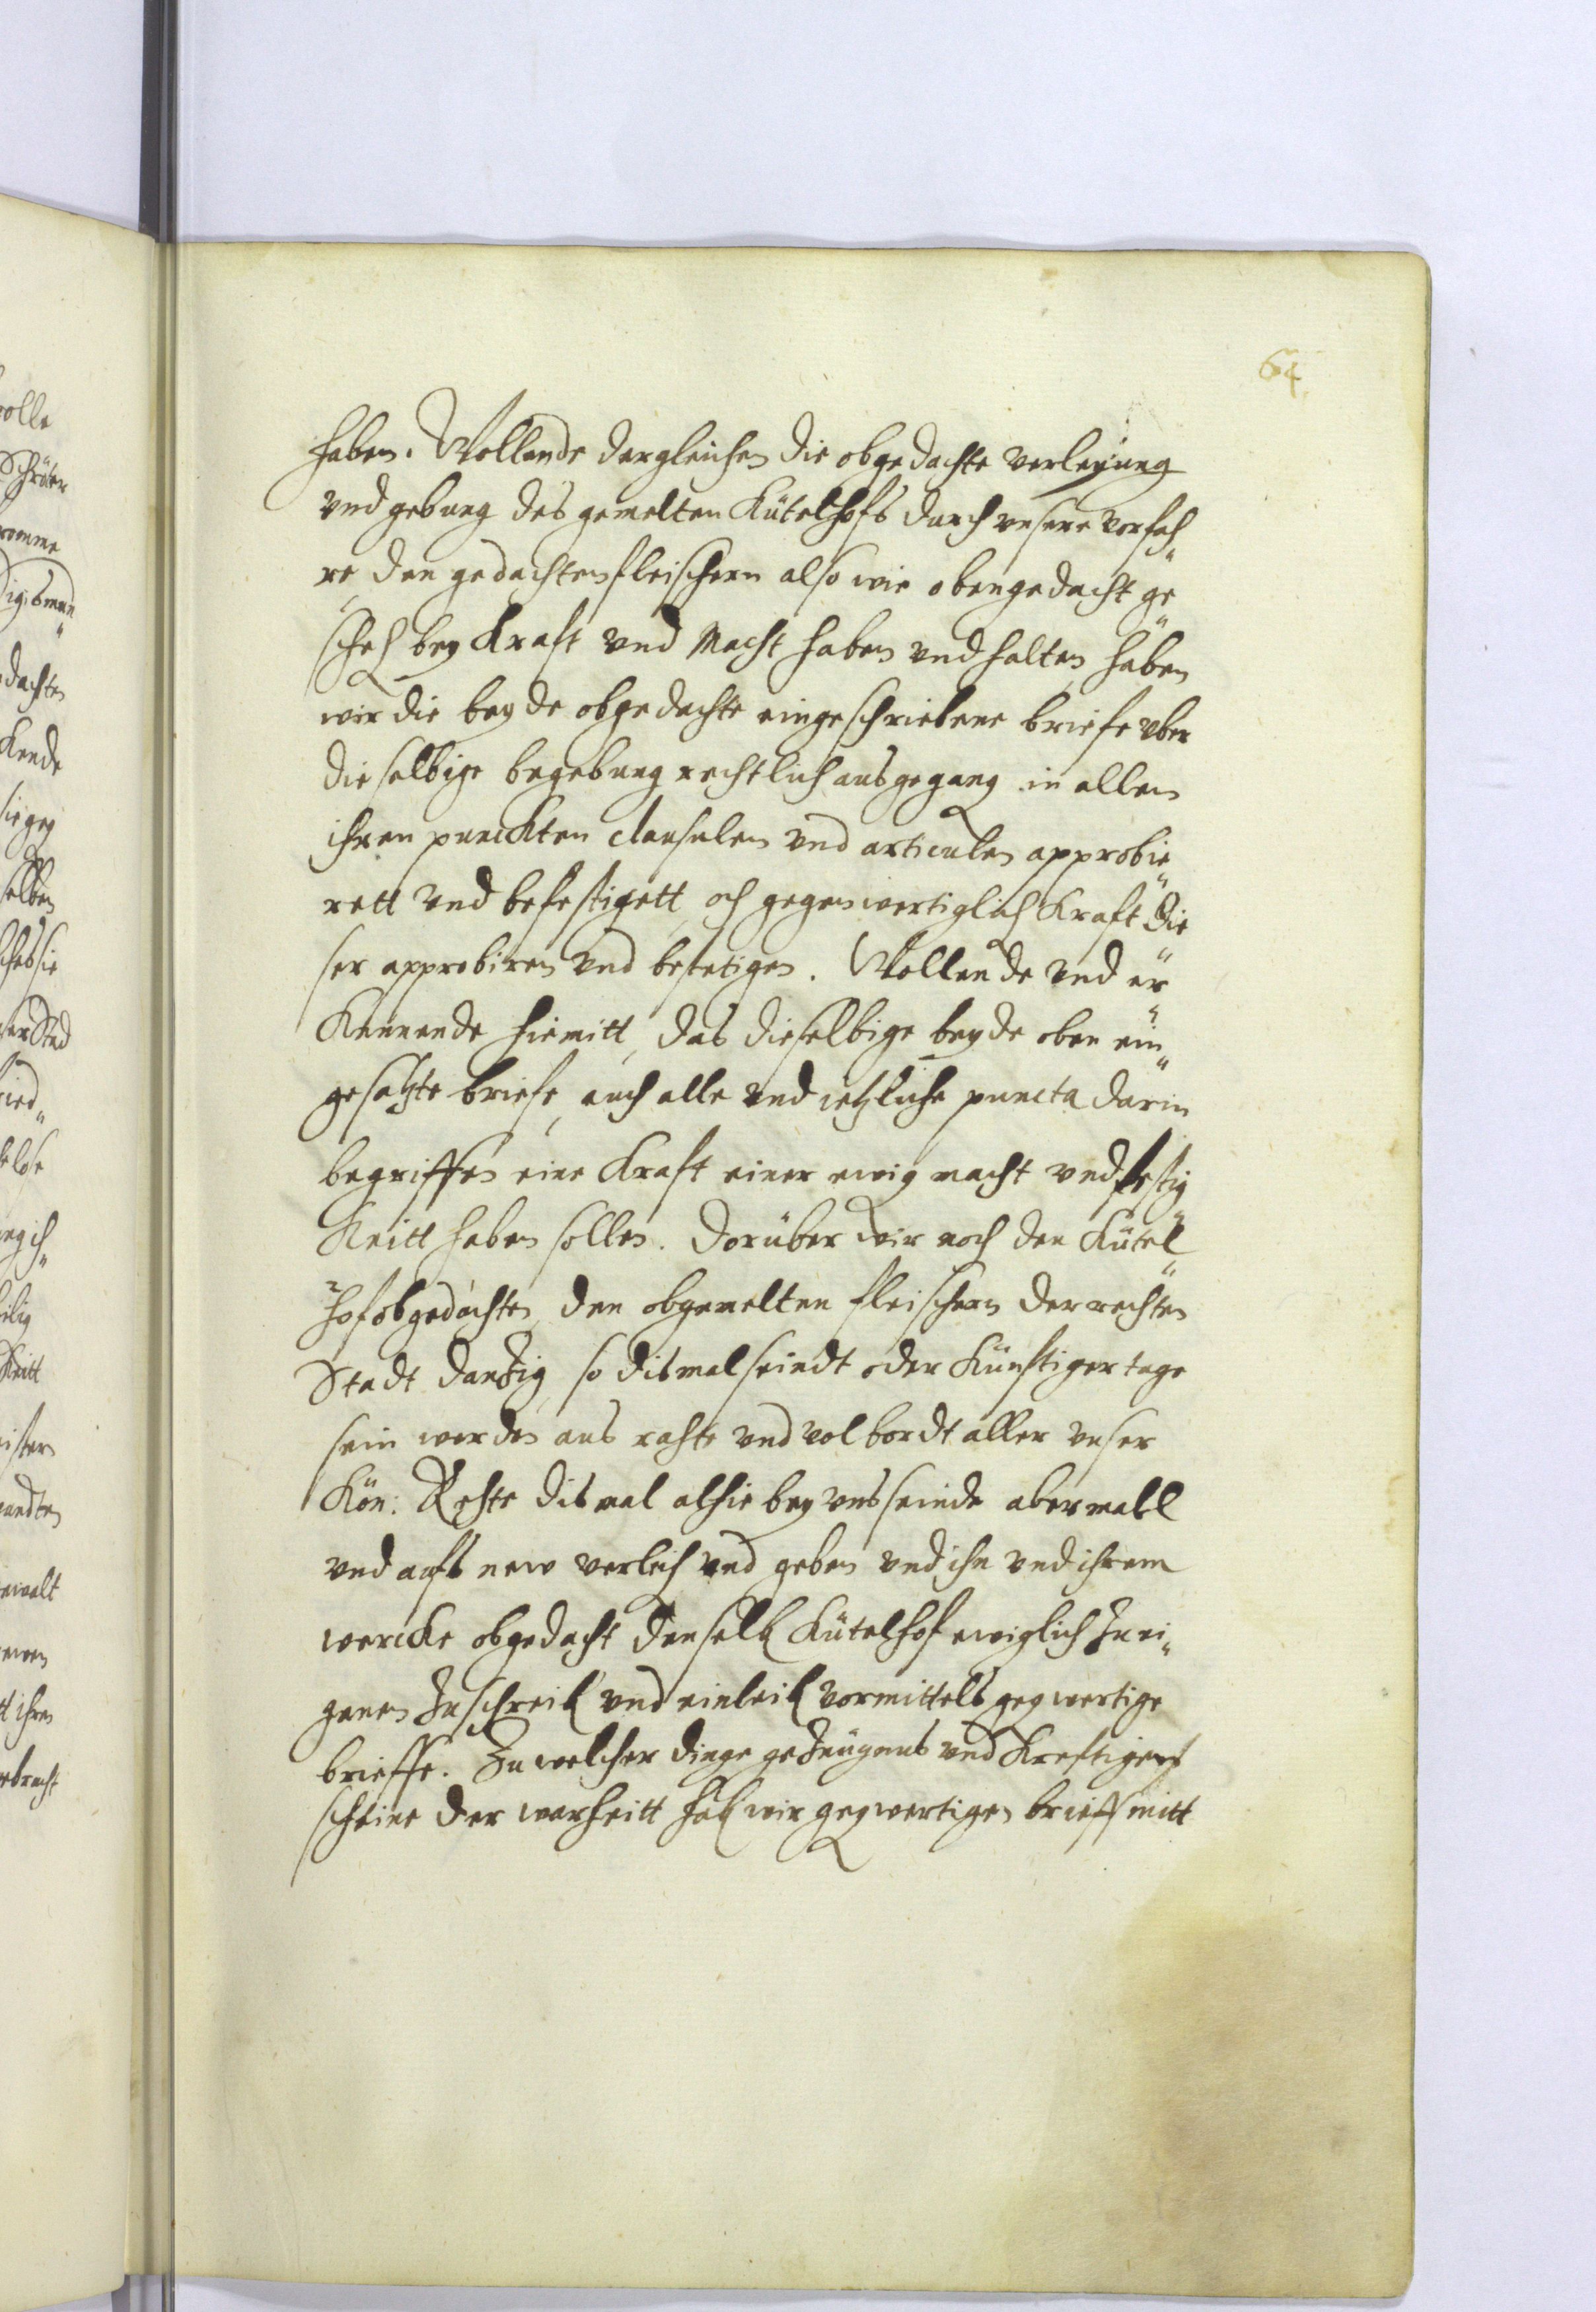 64
haben. Wollende dergleichen die obgedachte verleyung
vnd gebung des gemelten Kütelhofs durch vnsere vorfah„
re, den gedachten fleischern also wie oben gedacht ge„
scheh bey Kraft vnd Macht haben vnd halten, haben
wir die beyde obgedachte eingeschriebene briefe vber
dieselbige begebung rechtlich ausgegang in allen
ihren punckten clausulen vnd articulen approbie„
rett vnd befestigett, och gegenwertiglich Kraft die„
ser approbiren vnd bestetigen. Wollende vnd er„
Kennende hiemitt, das dieselbige beyde oben ein„
gesatzte briefe, auch alle vnd ietzliche puncta darin
begriffen eine Kraft einer ewig macht vnd festig„
Keitt haben sollen. Darüber wir noch den Kütel„
hof obgedachten, den obgemelten fleischern der rechten
Stadt Danzig so dismal seindt oder Künftiger tage
sein werden aus rahte vnd volbordt aller vnser
Kön: Rehte dismal alhie bey vns seinde abermall
vnd aufs new verleih vnd geben vnd ihn vnd ihrem
wercke obgedacht denselb Kütelhof ewiglich zu ei„
genen zuschreib vnd einleib vormittels gegwertige
brieffe. Zu welcher dinge gezeugnus vnd Kreftigen
scheine der warheitt hab wir gegwertigen brieff mitt
olle
Schröter
dachten
Kende
selben
Keitt
ister
andten
ewalt
t ihren
ebracht